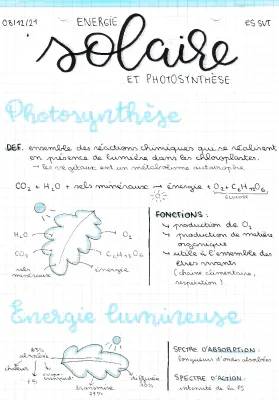 08/12/21
ENERGIE
ES SVT
solaire
ET PHOTOSYNTHÈSE
Photosynthèse
DEF. ensemble des réactions chimiques qui se réalisent
en présence de lumière dans les chloroplastes.
→ les végétaux ont un métabolisme autotrophe
CO₂ + H₂O + sels minéraux → énergie + O₂ + C₆H₁₂O₆
GLUCOSE
H₂O
CO₂
sels
minéraux
O₂
C₆H₁₂O₆
énergie
FONCTIONS :
↳ production de O₂
↳ production de matière
organique
↳ utile à l'ensemble des
êtres vivants
(chaîne alimentaire,
respiration)
Energie lumineuse
absorbée
chaleur
transmise
diffusée
SPECTRE D'ABSORPTION :
longueurs d'ondes absorbées
SPECTRE D'ACTION :
intensité de la PS